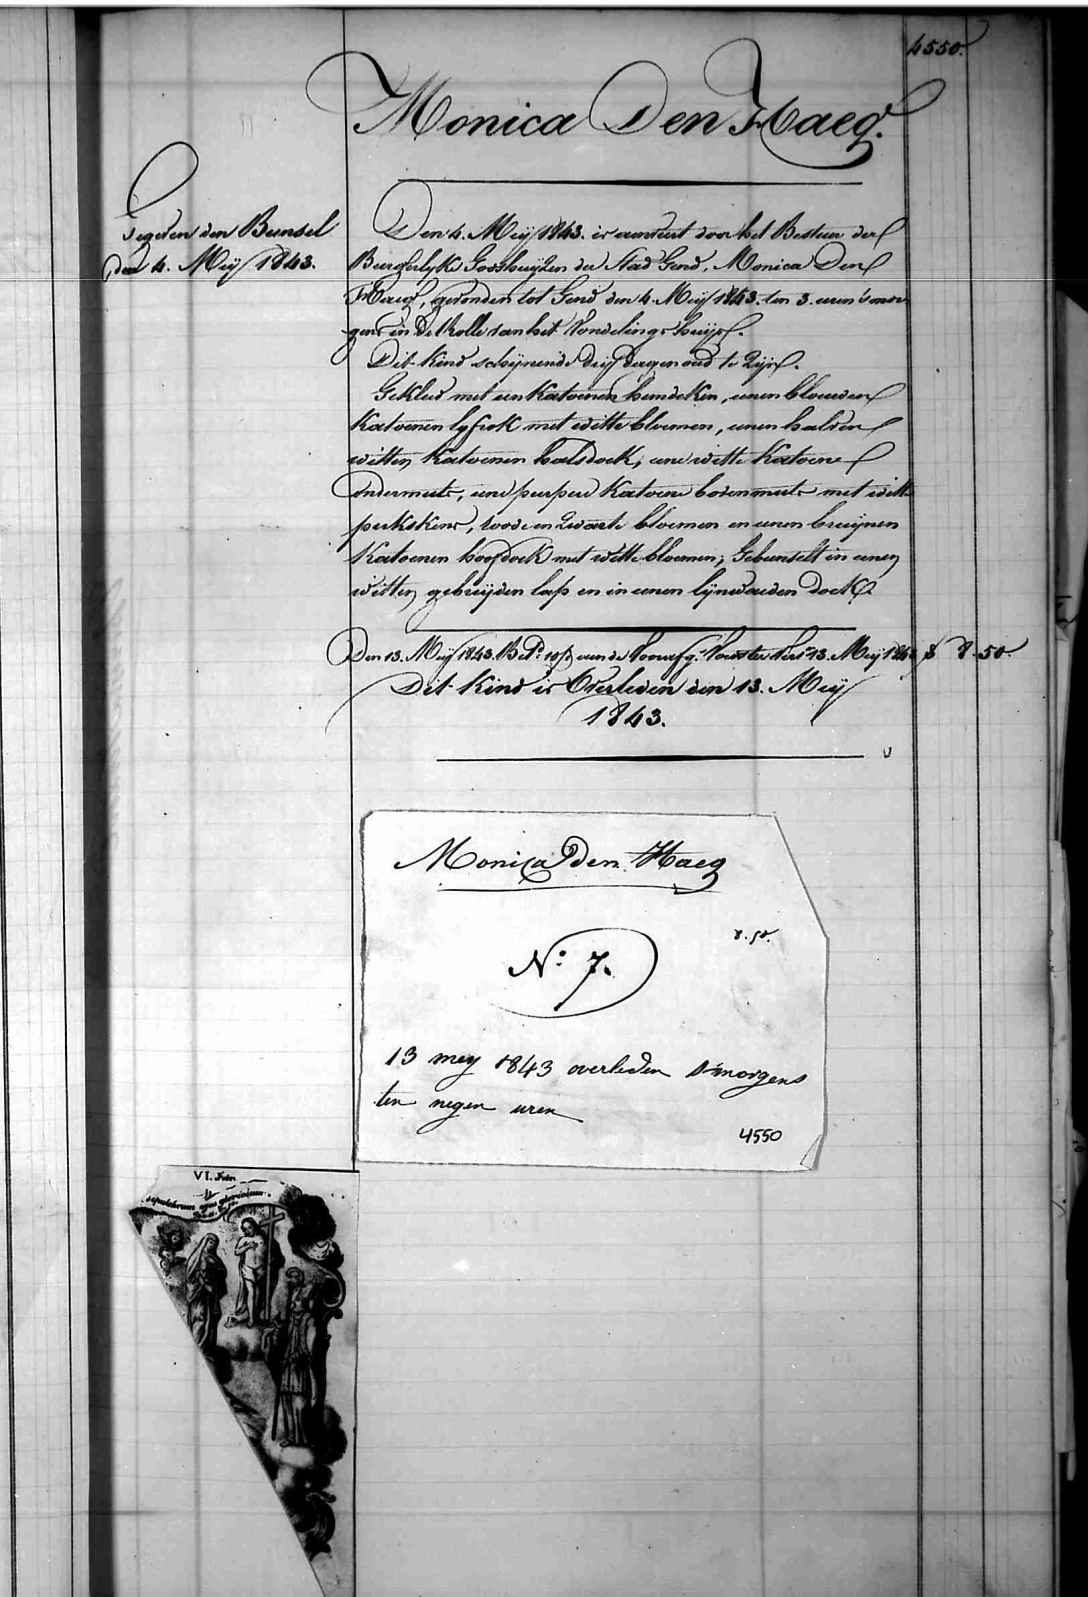 4550.
Monica Den Haeq.
Gegeven den Bunsel
den 4. Meij 1843.
Den 4. Meij 1843. is aenveert door het Bestuer der
Burgerlyke Godshuijzen der Stad Gend, Monica Den
Haeq, gevonden tot Gend den 4. Meij 1843. ten 3. uren 's mor-
gens in de Rolle van het Vondelings-huijs.
Dit kind schijnende drij dagen oud te zijn.
Gekleed met een katoenen hemdeken, eenen blauwen
katoenen lyfrok met witte bloemen, eenen halven
witten katoenen halsdoek, eene witte katoene
ondermuts, eene peerpere katoene bovenmuts met witte
perkskens, roode en zwarte bloemen en eenen bruijnen
katoenen hoofdoek met witte bloemen; Gebunselt in eenen
witten gebreijden lap en in eenen lynwaeden doek.
Den 13. Meij 1843. aen de Voorsz. Voester 13. Meij 1843 8-50.
Dit kind is Overleden den 13. Meij
1843.
Monica Den Haeq
8.50.
N.º 7.
13 mey 1843 overleden s'morgens
ten negen uren
4550
VI.
sepulchrum ejus gloriosum.